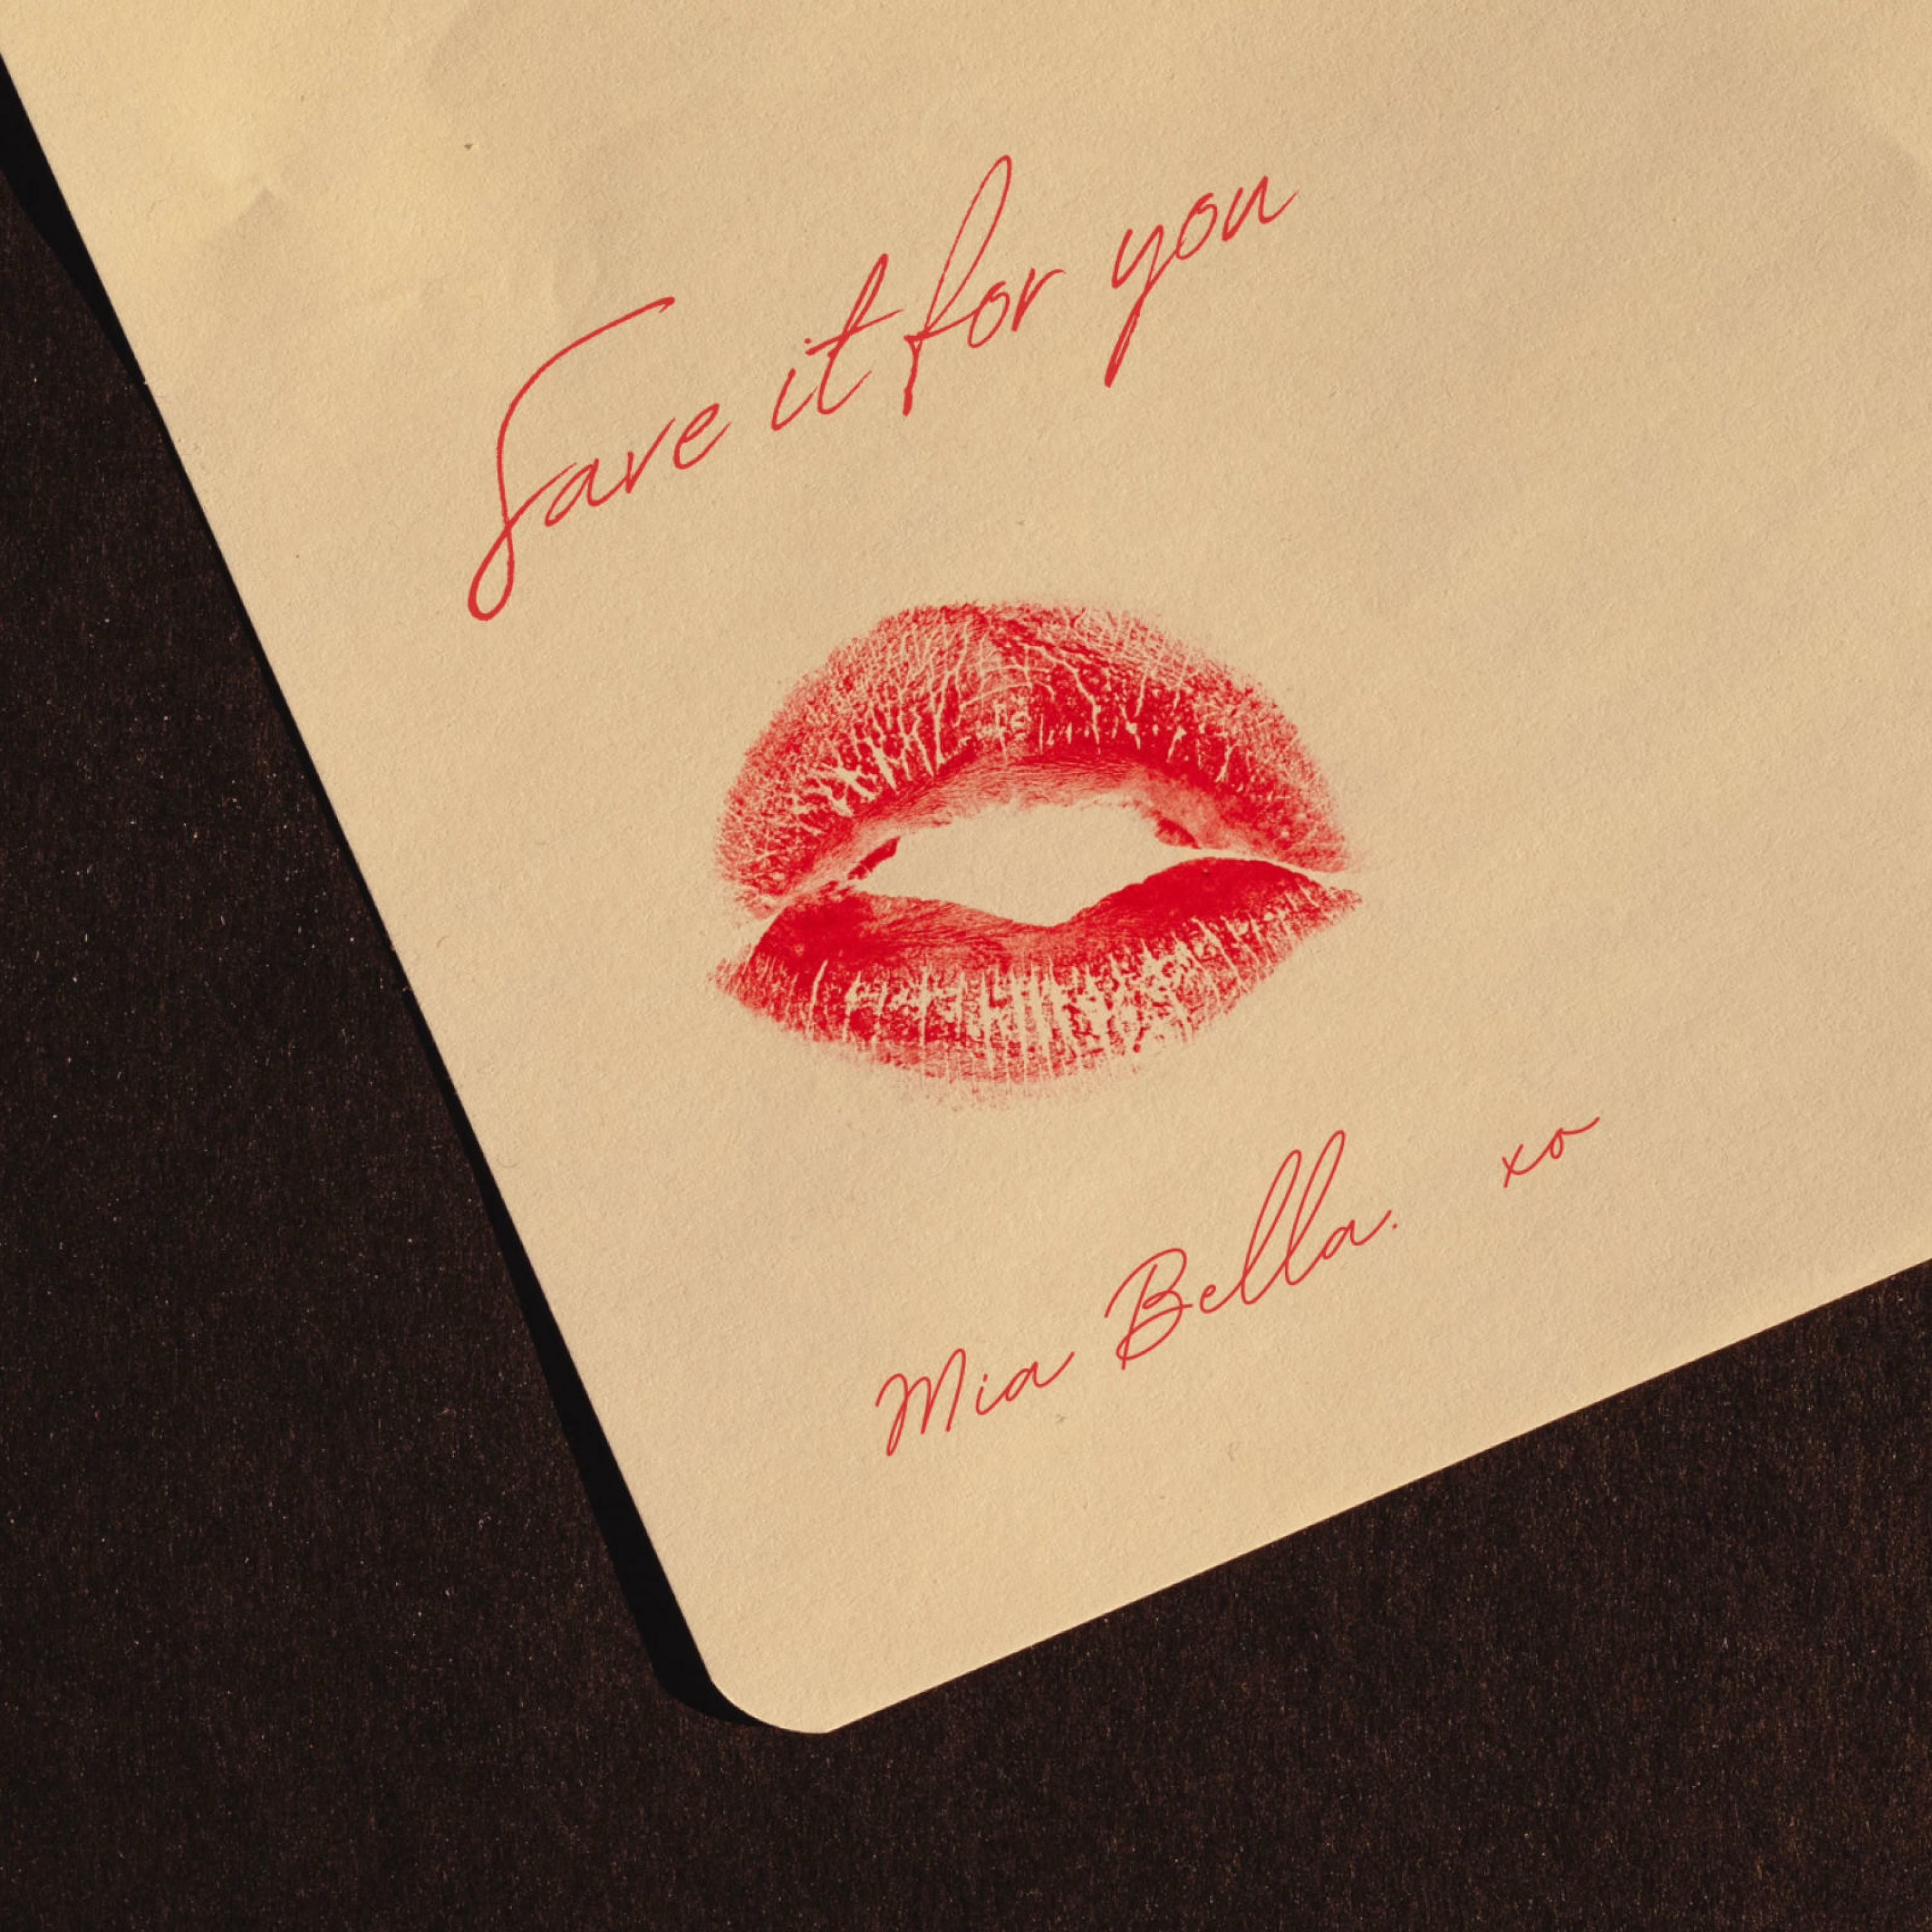 Save it for you
Mia Bella. xo